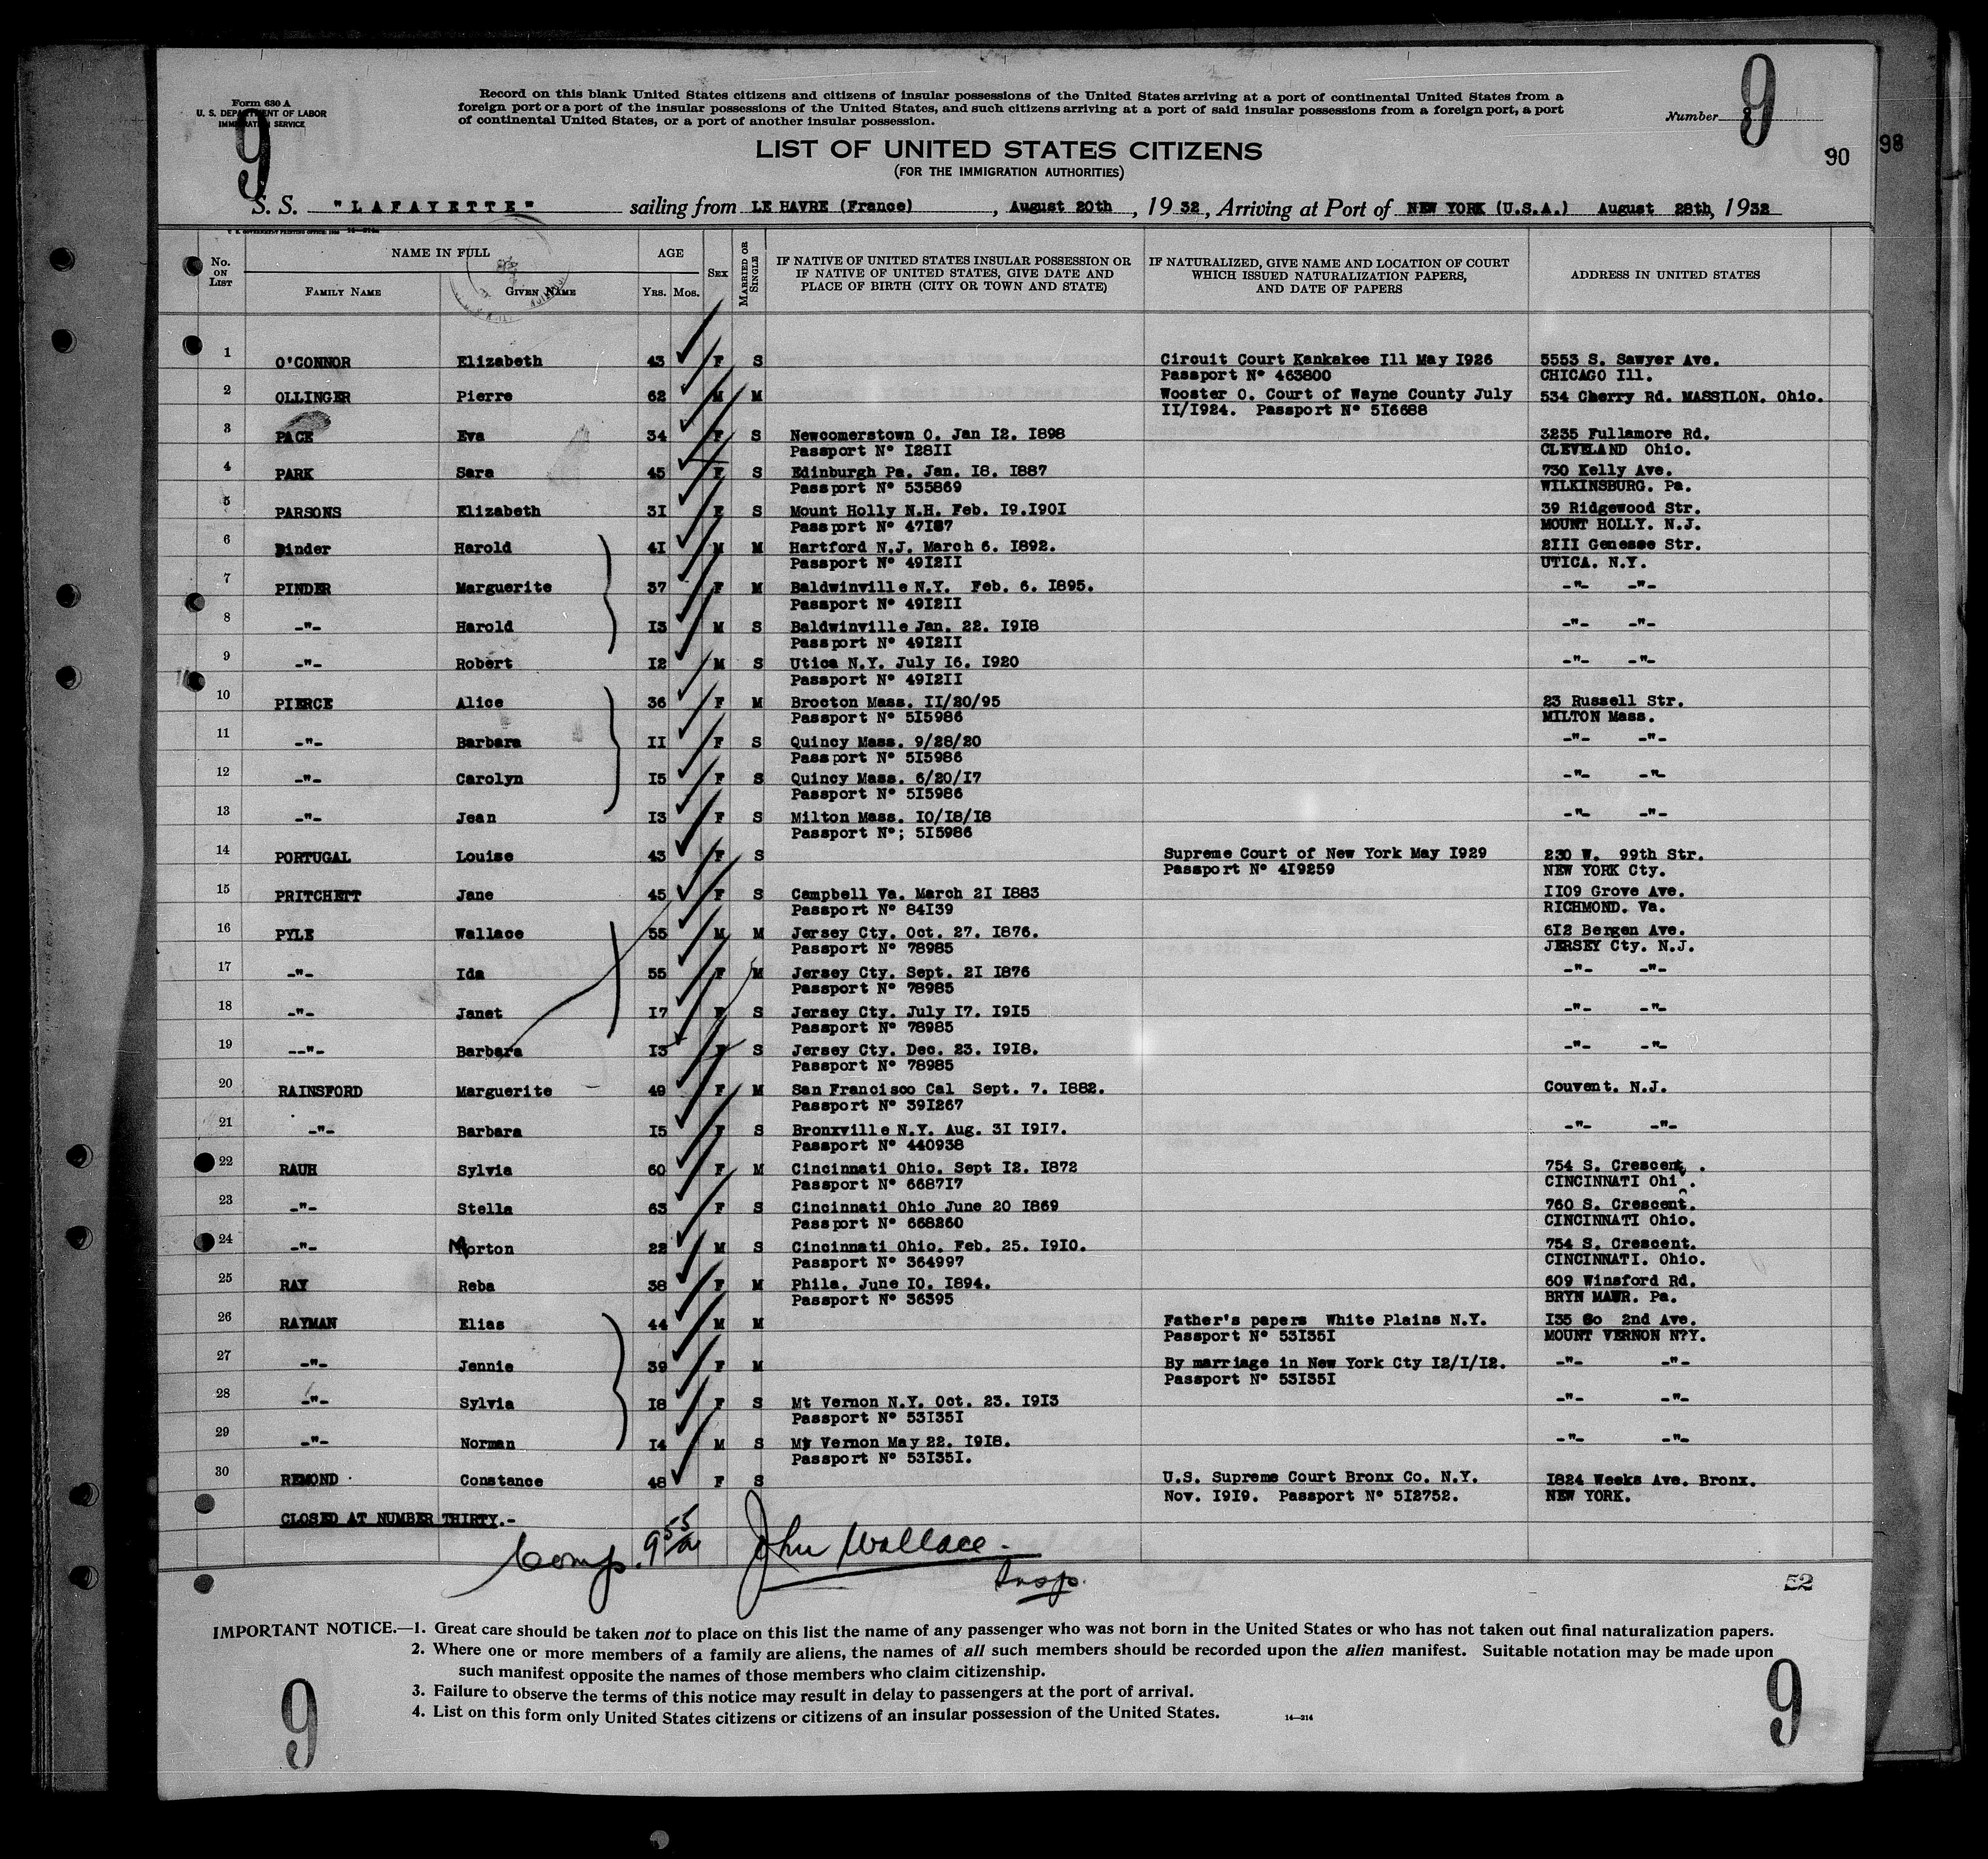 Form 630 A
U. S. DEPARTMENT OF LABOR
IMMIGRATION SERVICE
Record on this blank United States citizens and citizens of insular possessions of the United States arriving at a port of continental United States from a
foreign port or a port of the insular possessions of the United States, and such citizens arriving at a port of said insular possessions from a foreign port, a port
of continental United States, or a port of another insular possession.
Number
9
9
90
98
LIST OF UNITED STATES CITIZENS
(FOR THE IMMIGRATION AUTHORITIES)
S. S. "LAFAYETTE" sailing from LE HAVRE (France), August 20th, 1932, Arriving at Port of NEW YORK (U.S.A.) August 28th, 1932
No. ON LIST
NAME IN FULL
FAMILY NAME GIVEN NAME
AGE
YRS. MOS.
SEX
MARRIED OR SINGLE
IF NATIVE OF UNITED STATES INSULAR POSSESSION OR
IF NATIVE OF UNITED STATES, GIVE DATE AND
PLACE OF BIRTH (CITY OR TOWN AND STATE)
IF NATURALIZED, GIVE NAME AND LOCATION OF COURT
WHICH ISSUED NATURALIZATION PAPERS,
AND DATE OF PAPERS
ADDRESS IN UNITED STATES
1 O'CONNOR Elizabeth 43 F S Circuit Court Kankakee Ill May I926 5553 S. Sawyer Ave.
Passport N° 463800 CHICAGO Ill.
2 OLLINGER Pierre 62 M M Wooster O. Court of Wayne County July 534 Cherry Rd. MASSILON. Ohio.
II/I924. Passport N° 5I6688
3 PACE Eva 34 F S Newcomerstown O. Jan I2. I898 3235 Fullamore Rd.
Passport N° I28II CLEVELAND Ohio.
4 PARK Sara 45 F S Edinburgh Pa. Jan. I8. I887 730 Kelly Ave.
Passport N° 535869 WILKINSBURG. Pa.
5 PARSONS Elizabeth 3I F S Mount Holly N.H. Feb. I9.I90I 39 Ridgewood Str.
Passport N° 47I87 MOUNT HOLLY. N.J.
6 Pinder Harold 4I M M Hartford N.J. March 6. I892. 2III Genesse Str.
Passport N° 49I2II UTICA. N.Y.
7 PINDER Marguerite 37 F M Baldwinville N.Y. Feb. 6. I895. -"- -"-
Passport N° 49I2II
8 -"- Harold I3 M S Baldwinville Jan. 22. I9I8 -"- -"-
Passport N° 49I2II
9 -"- Robert I2 M S Utica N.Y. July I6. I920 -"- -"-
Passport N° 49I2II
10 PIERCE Alice 36 F M Brocton Mass. II/20/95 23 Russell Str.
Passport N° 5I5986 MILTON Mass.
11 -"- Barbara II F S Quincy Mass. 9/28/20 -"- -"-
Passport N° 5I5986
12 -"- Carolyn I5 F S Quincy Mass. 6/20/I7 -"- -"-
Passport N° 5I5986
13 -"- Jean I3 F S Milton Mass. IO/I8/I8 -"- -"-
Passport N°; 5I5986
14 PORTUGAL Louise 43 F S Supreme Court of New York May I929 230 W. 99th Str.
Passport N° 4I9259 NEW YORK Cty.
15 PRITCHETT Jane 45 F S Campbell Va. March 2I I883 II09 Grove Ave.
Passport N° 84I39 RICHMOND. Va.
16 PYLE Wallace 55 M M Jersey Cty. Oct. 27. I876. 6I2 Bergen Ave.
Passport N° 78985 JERSEY Cty. N.J.
17 -"- Ida 55 F M Jersey Cty. Sept. 2I I876 -"- -"-
Passport N° 78985
18 -"- Janet I7 F S Jersey Cty. July I7. I9I5 -"- -"-
Passport N° 78985
19 --"- Barbara I3 F S Jersey Cty. Dec. 23. I9I8. -"- -"-
Passport N° 78985
20 RAINSFORD Marguerite 49 F M San Francisco Cal Sept. 7. I882. Couvent. N.J.
Passport N° 39I267
21 -"- Barbara I5 F S Bronxville N.Y. Aug. 3I I9I7. -"- -"-
Passport N° 440938
22 RAUH Sylvia 60 F M Cincinnati Ohio. Sept I2. I872 754 S. Crescent .
Passport N° 6687I7 CINCINNATI Ohi .
23 -"- Stella 63 F S Cincinnati Ohio June 20 I869 760 S. Crescent.
Passport N° 668260 CINCINNATI Ohio.
24 -"- Morton 22 M S Cincinnati Ohio. Feb. 25. I9IO. 754 S. Crescent.
Passport N° 364997 CINCINNATI. Ohio.
25 RAY Reba 38 F M Phila. June IO. I894. 609 Winsford Rd.
Passport N° 36395 BRYN MAWR. Pa.
26 RAYMAN Elias 44 M M Father's papers White Plains N.Y. I35 So 2nd Ave.
Passport N° 53I35I MOUNT VERNON N?Y.
27 -"- Jennie 39 F M By marriage in New York Cty I2/I/I2. -"- -"-
Passport N° 53I35I
28 -"- Sylvia I8 F S Mt Vernon N.Y. Oct. 23. I9I3 -"- -"-
Passport N° 53I35I
29 -"- Norman I4 M S Mt Vernon May 22. I9I8. -"- -"-
Passport N° 53I35I.
30 REMOND Constance 48 F S U.S. Supreme Court Bronx Co. N.Y. I824 Weeks Ave. Bronx.
Nov. I9I9. Passport N° 5I2752. NEW YORK.
CLOSED AT NUMBER THIRTY.-
Comp. 9 55/a John Wallace.
Insp.
52
IMPORTANT NOTICE.—1. Great care should be taken not to place on this list the name of any passenger who was not born in the United States or who has not taken out final naturalization papers.
2. Where one or more members of a family are aliens, the names of all such members should be recorded upon the alien manifest. Suitable notation may be made upon
such manifest opposite the names of those members who claim citizenship.
3. Failure to observe the terms of this notice may result in delay to passengers at the port of arrival.
4. List on this form only United States citizens or citizens of an insular possession of the United States.
14—214
9
9